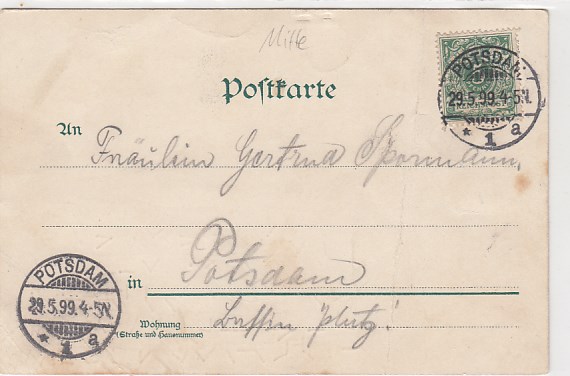 Mitte
Postkarte
POTSDAM
29.5.99.4-5N.
* 1 a
An Fräulein Gertrud Spormann,
in Potsdam
POTSDAM
29.5.99.4-5N.
* 1 a
Wohnung
(Straße und Hausnummer)